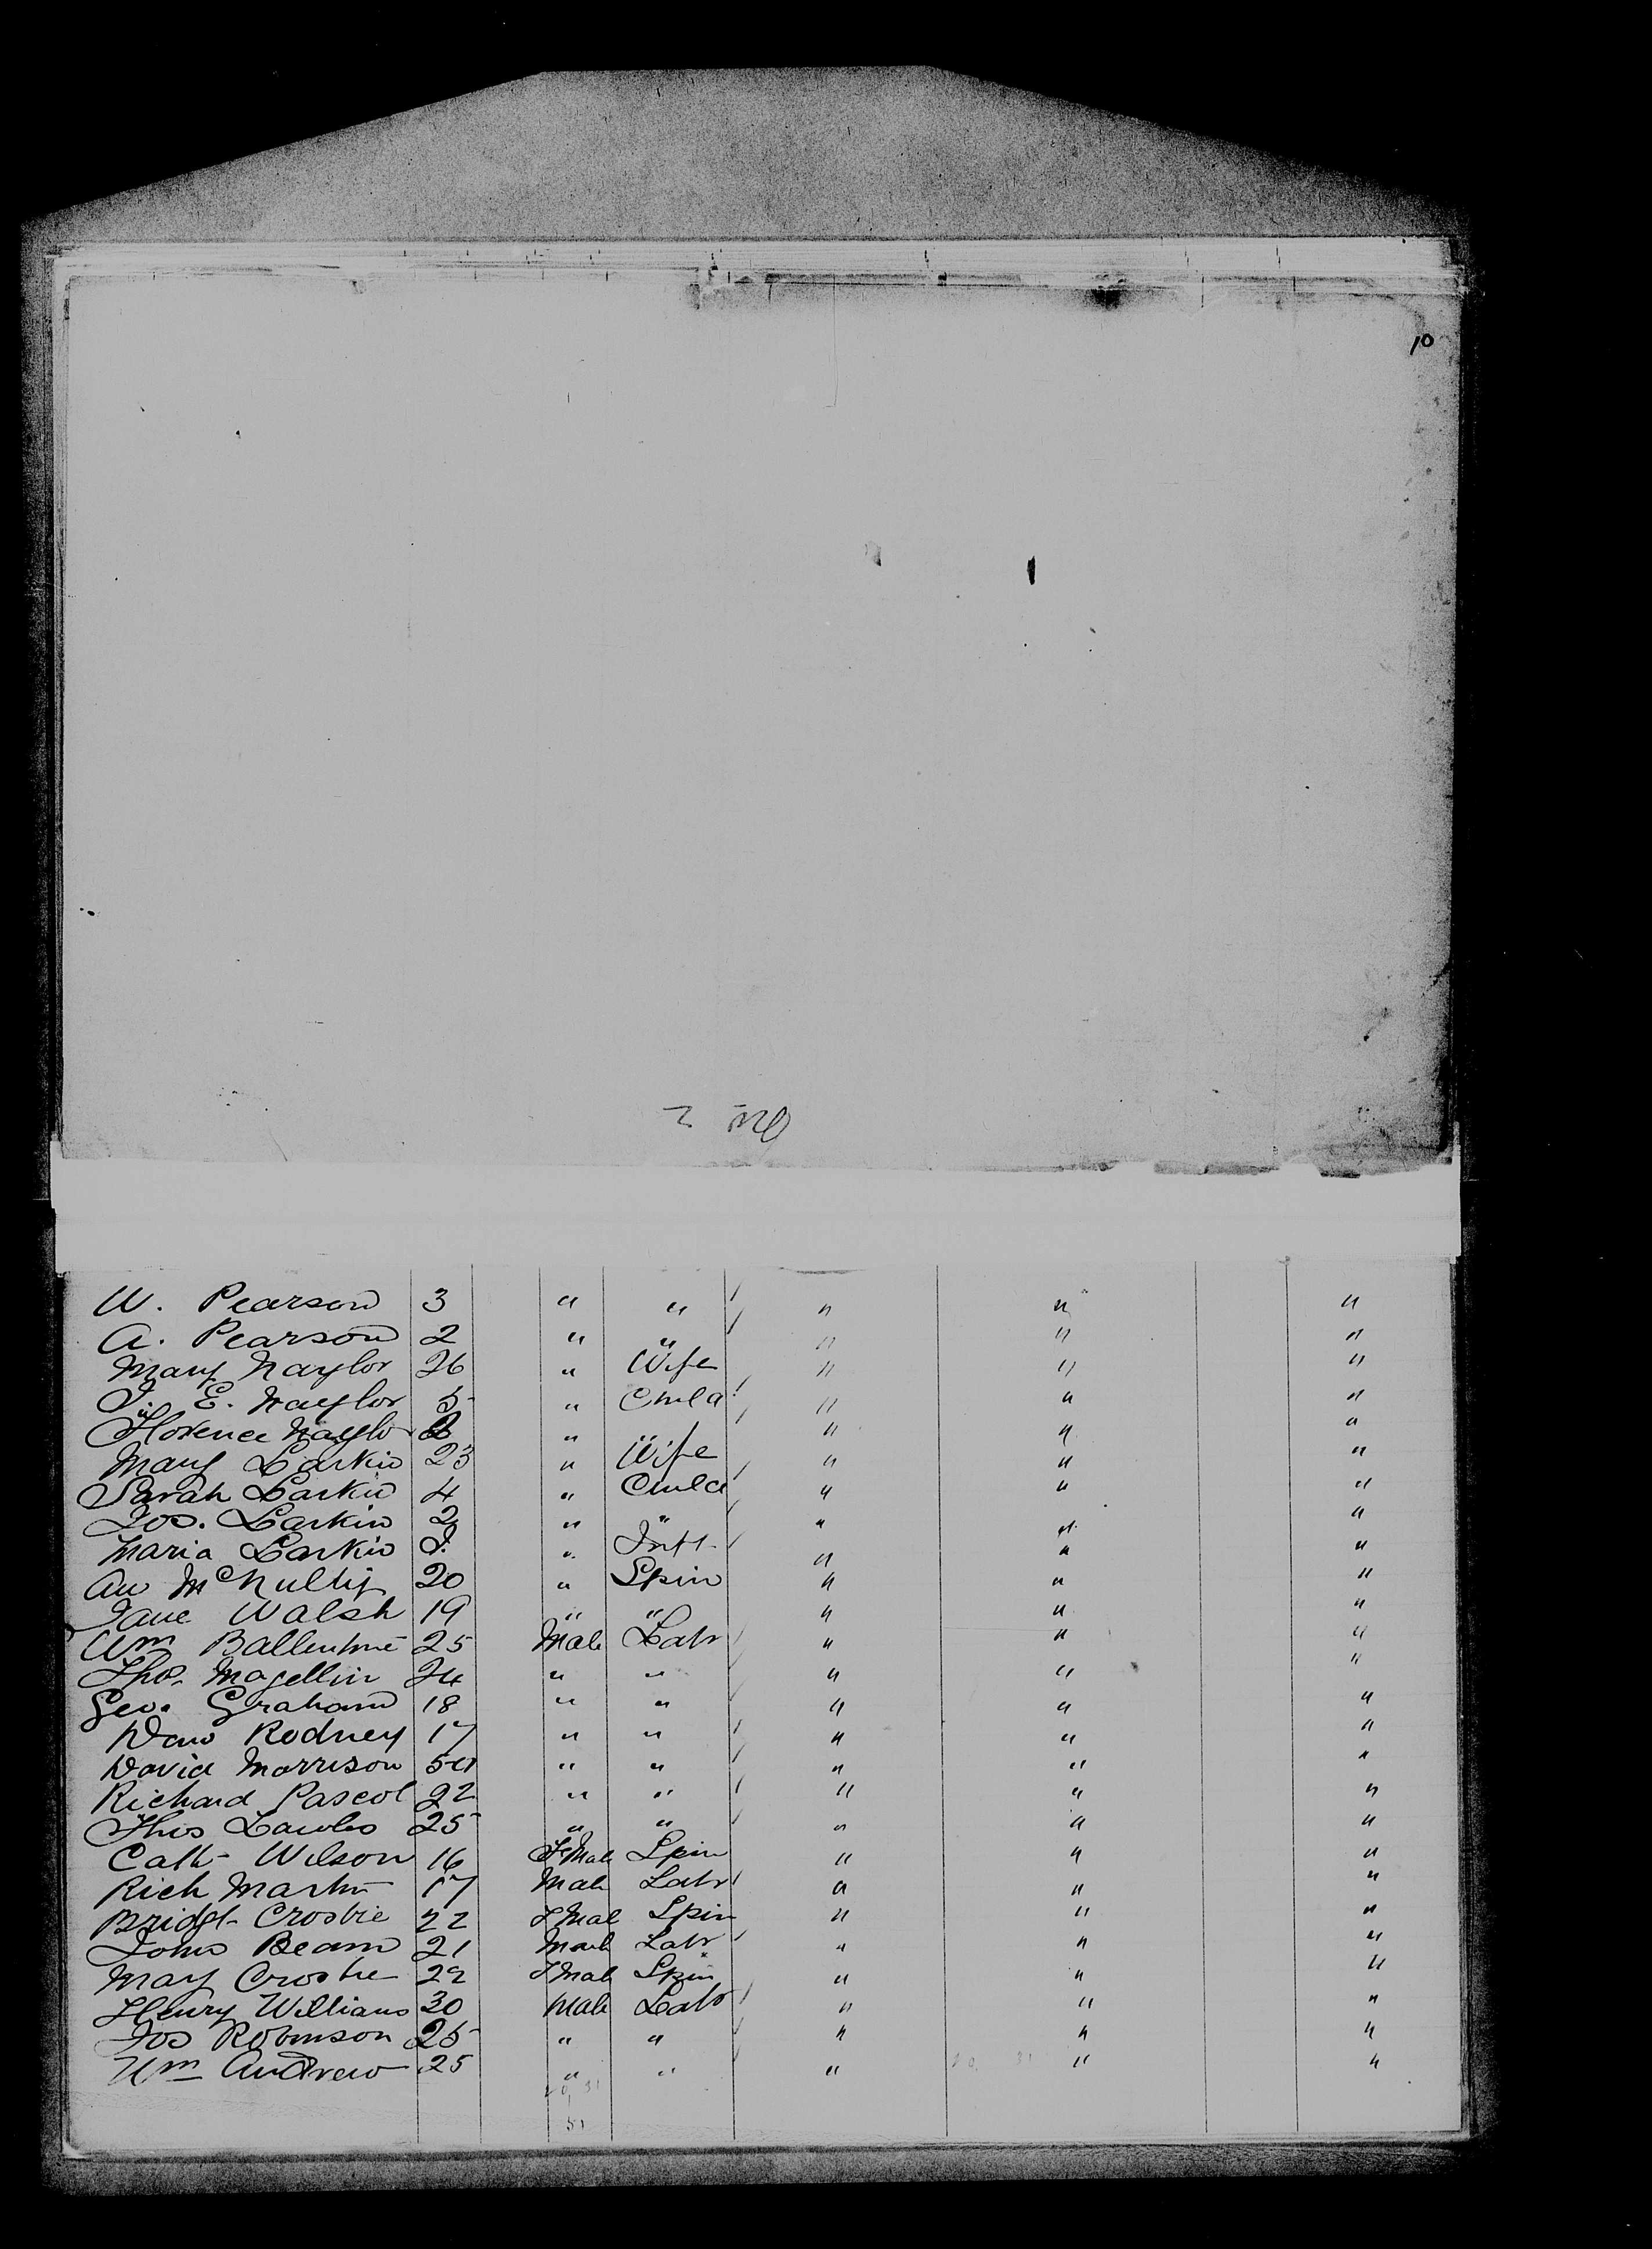 10
W. Pearson 3 " " " " "
A. Pearson 2 " " " " "
Mary Naylor 26 " Wife " " "
J. E. Naylor 5 " Child " " "
Florence Naylor " " " " "
Mary Larkin 23 " Wife " " "
Sarah Larkin 4 " Child " " "
Jos. Larkin 2 " " " " "
Maria Larkin " Inft " " "
Ann McNulty 20 " Spin " " "
Jane Walsh 19 " " " " "
Wm Ballentine 25 Male Labr " " "
Thos. Magellin 24 " " " " "
Geo. Graham 18 " " " " "
Danl Rodney 17 " " " " "
David Morrison 50 " " " " "
Richard Pascol 22 " " " " "
Thos Lawles 25 " " " " "
Cath Wilson 16 FeMale Spin " " "
Rich Martin 17 Male Labr " " "
Bridgt Crosbie 22 FMale Spin " " "
John Beam 21 Male Labr " " "
Mary Crosbie 22 FMale Spin " " "
Henry Williams 30 Male Labr " " "
Jos Robinson 25 " " " " "
Wm Andrew 25 " " " " "
20 31
51